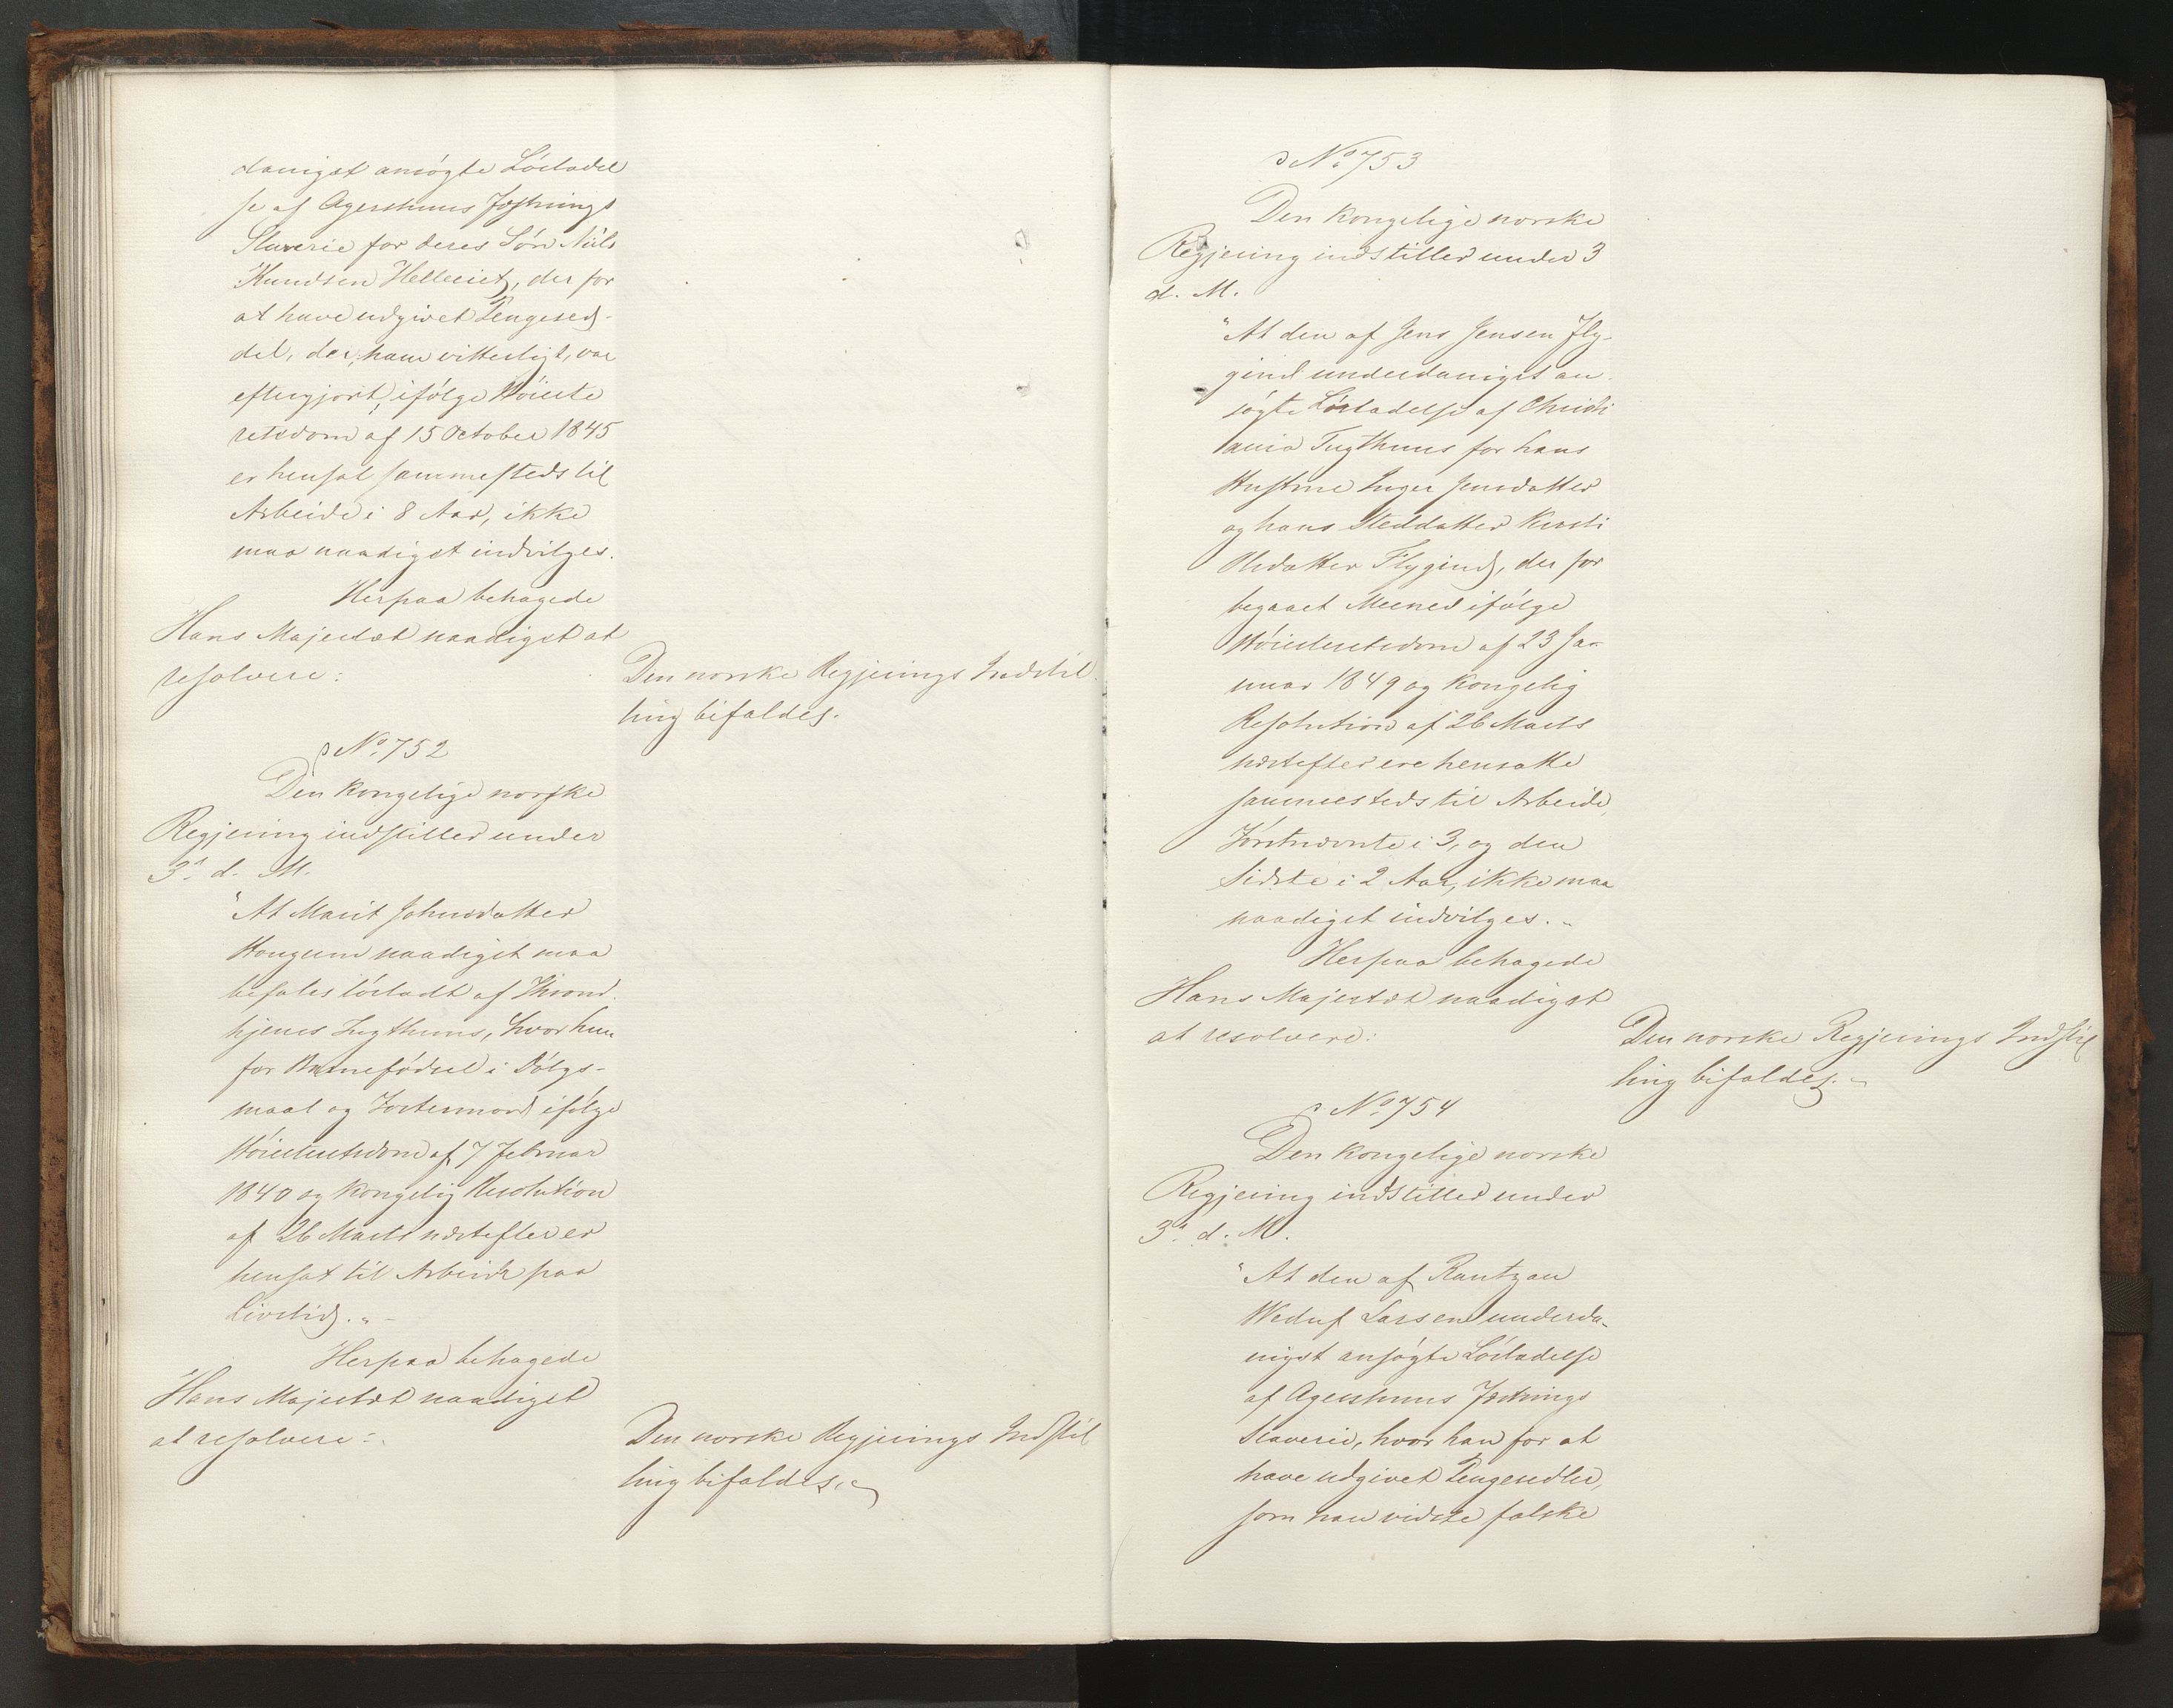 danigst ansøgte Løsladel
se af Agershuus Fæstnings
Slaverie for deres Søn Niels
Knudsen Helleeiet, der for
at have udgivet Pengesed-
del, der, ham vitterligt, var
eftergjort, ifølge Høieste
retsdom af 15 October 1845
er hensat sammesteds til
Arbeide i 8 Aar, ikke
maa naadigst indvilges.
Herpaa behagede
Hans Majestæt naadigst at
resolvere:
Den norske Regjerings Indstil
ling bifaldes.
No 752
Den kongelige norske
Regjering indstiller under
3 d. M.
"At Marit Johnsdatter
naadigst maa
befales løsladt af Thrond
hjems Tugthuus, hvor hun
for Barnefødsel i Dølgs-
maal og Fostermord ifølge
Høiesteretsdom af 7 Februar
1840 og kongelig Resolution
af 26 Marts næstefter er
hensat til Arbeide paa
Livstid."-
Herpaa behagede
Hans Majestæt naadigst
at resolvere:
Den norske Regjerings Indstil
ling bifaldes.
No 753
Den kongelige norske
Regjering indstiller under 3
d. M.
"At den af Jens Jensen Fly-
gind underdanigst an-
søgte Løsladelse af Christi
ania Tugthuus for hans
Hustrue Inger Jensdatter
og hans Steddatter Kersti
Olsdatter Flygind, der for
begaaet Meened ifølge
Høiesteretsdom af 23 Ja-
nuar 1849 og kongelig
Resolution af 26 Marts
næstefter ere hensatte
sammesteds til Arbeide,
Førstnævnte i 3, og den
Sidste i 2 Aar, ikke maa
naadigst indvilges."
Herpaa behagede
Hans Majestæt naadigst
at resolvere:
Den norske Regjerings Indstil
ling bifaldes.
No 754
Den kongelige norske
Regjering indstiller under
3 d. M.
"At den af Rantzau
Larsen underda-
nigst ansøgte Løsladelse
af Agershuus Fæstnings
Slaverie, hvor han for at
have udgivet Pengesedler,
som han vidste falske